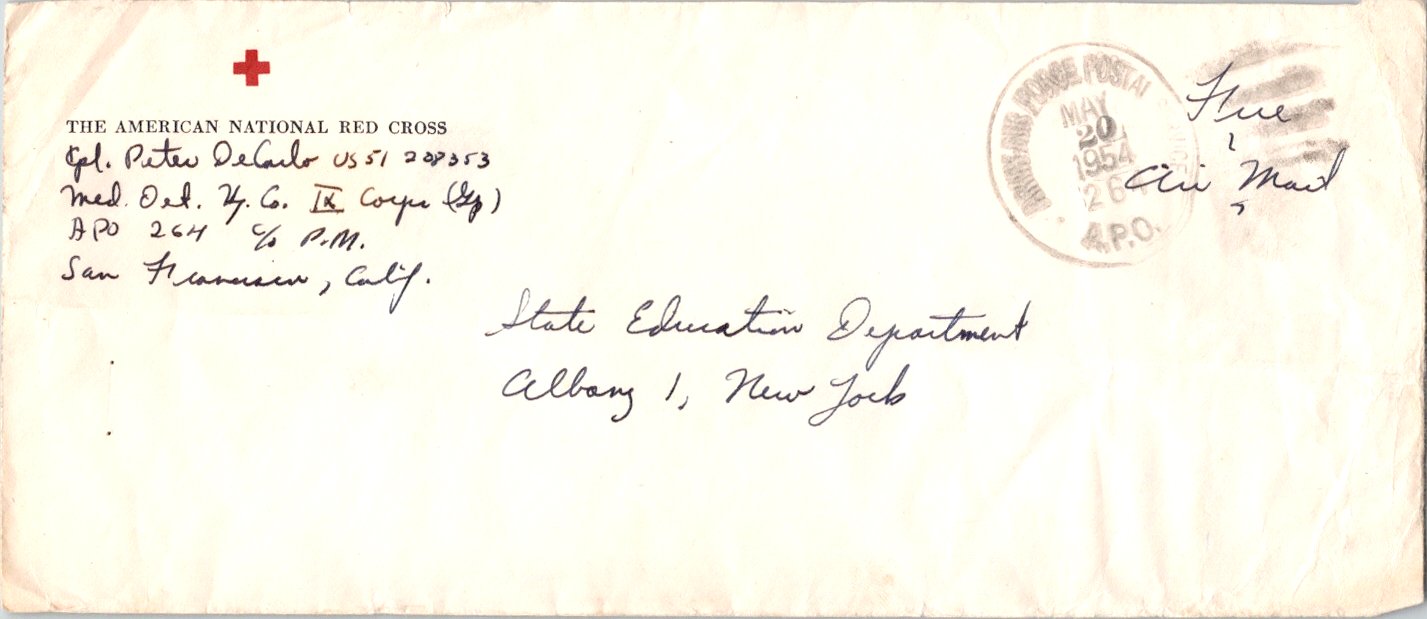 THE AMERICAN NATIONAL RED CROSS
Cpl. Peter DeCarlo US 51 208353
Med. Det. Hq. Co. IX Corps (Gp)
APO 264 c/o P.M.
San Francisco, Calif.
ARMY-AIR FORCE POSTAL SERVICE
MAY
20
1954
26
A.P.O.
Free
Air Mail
State Education Department
Albany 1, New York